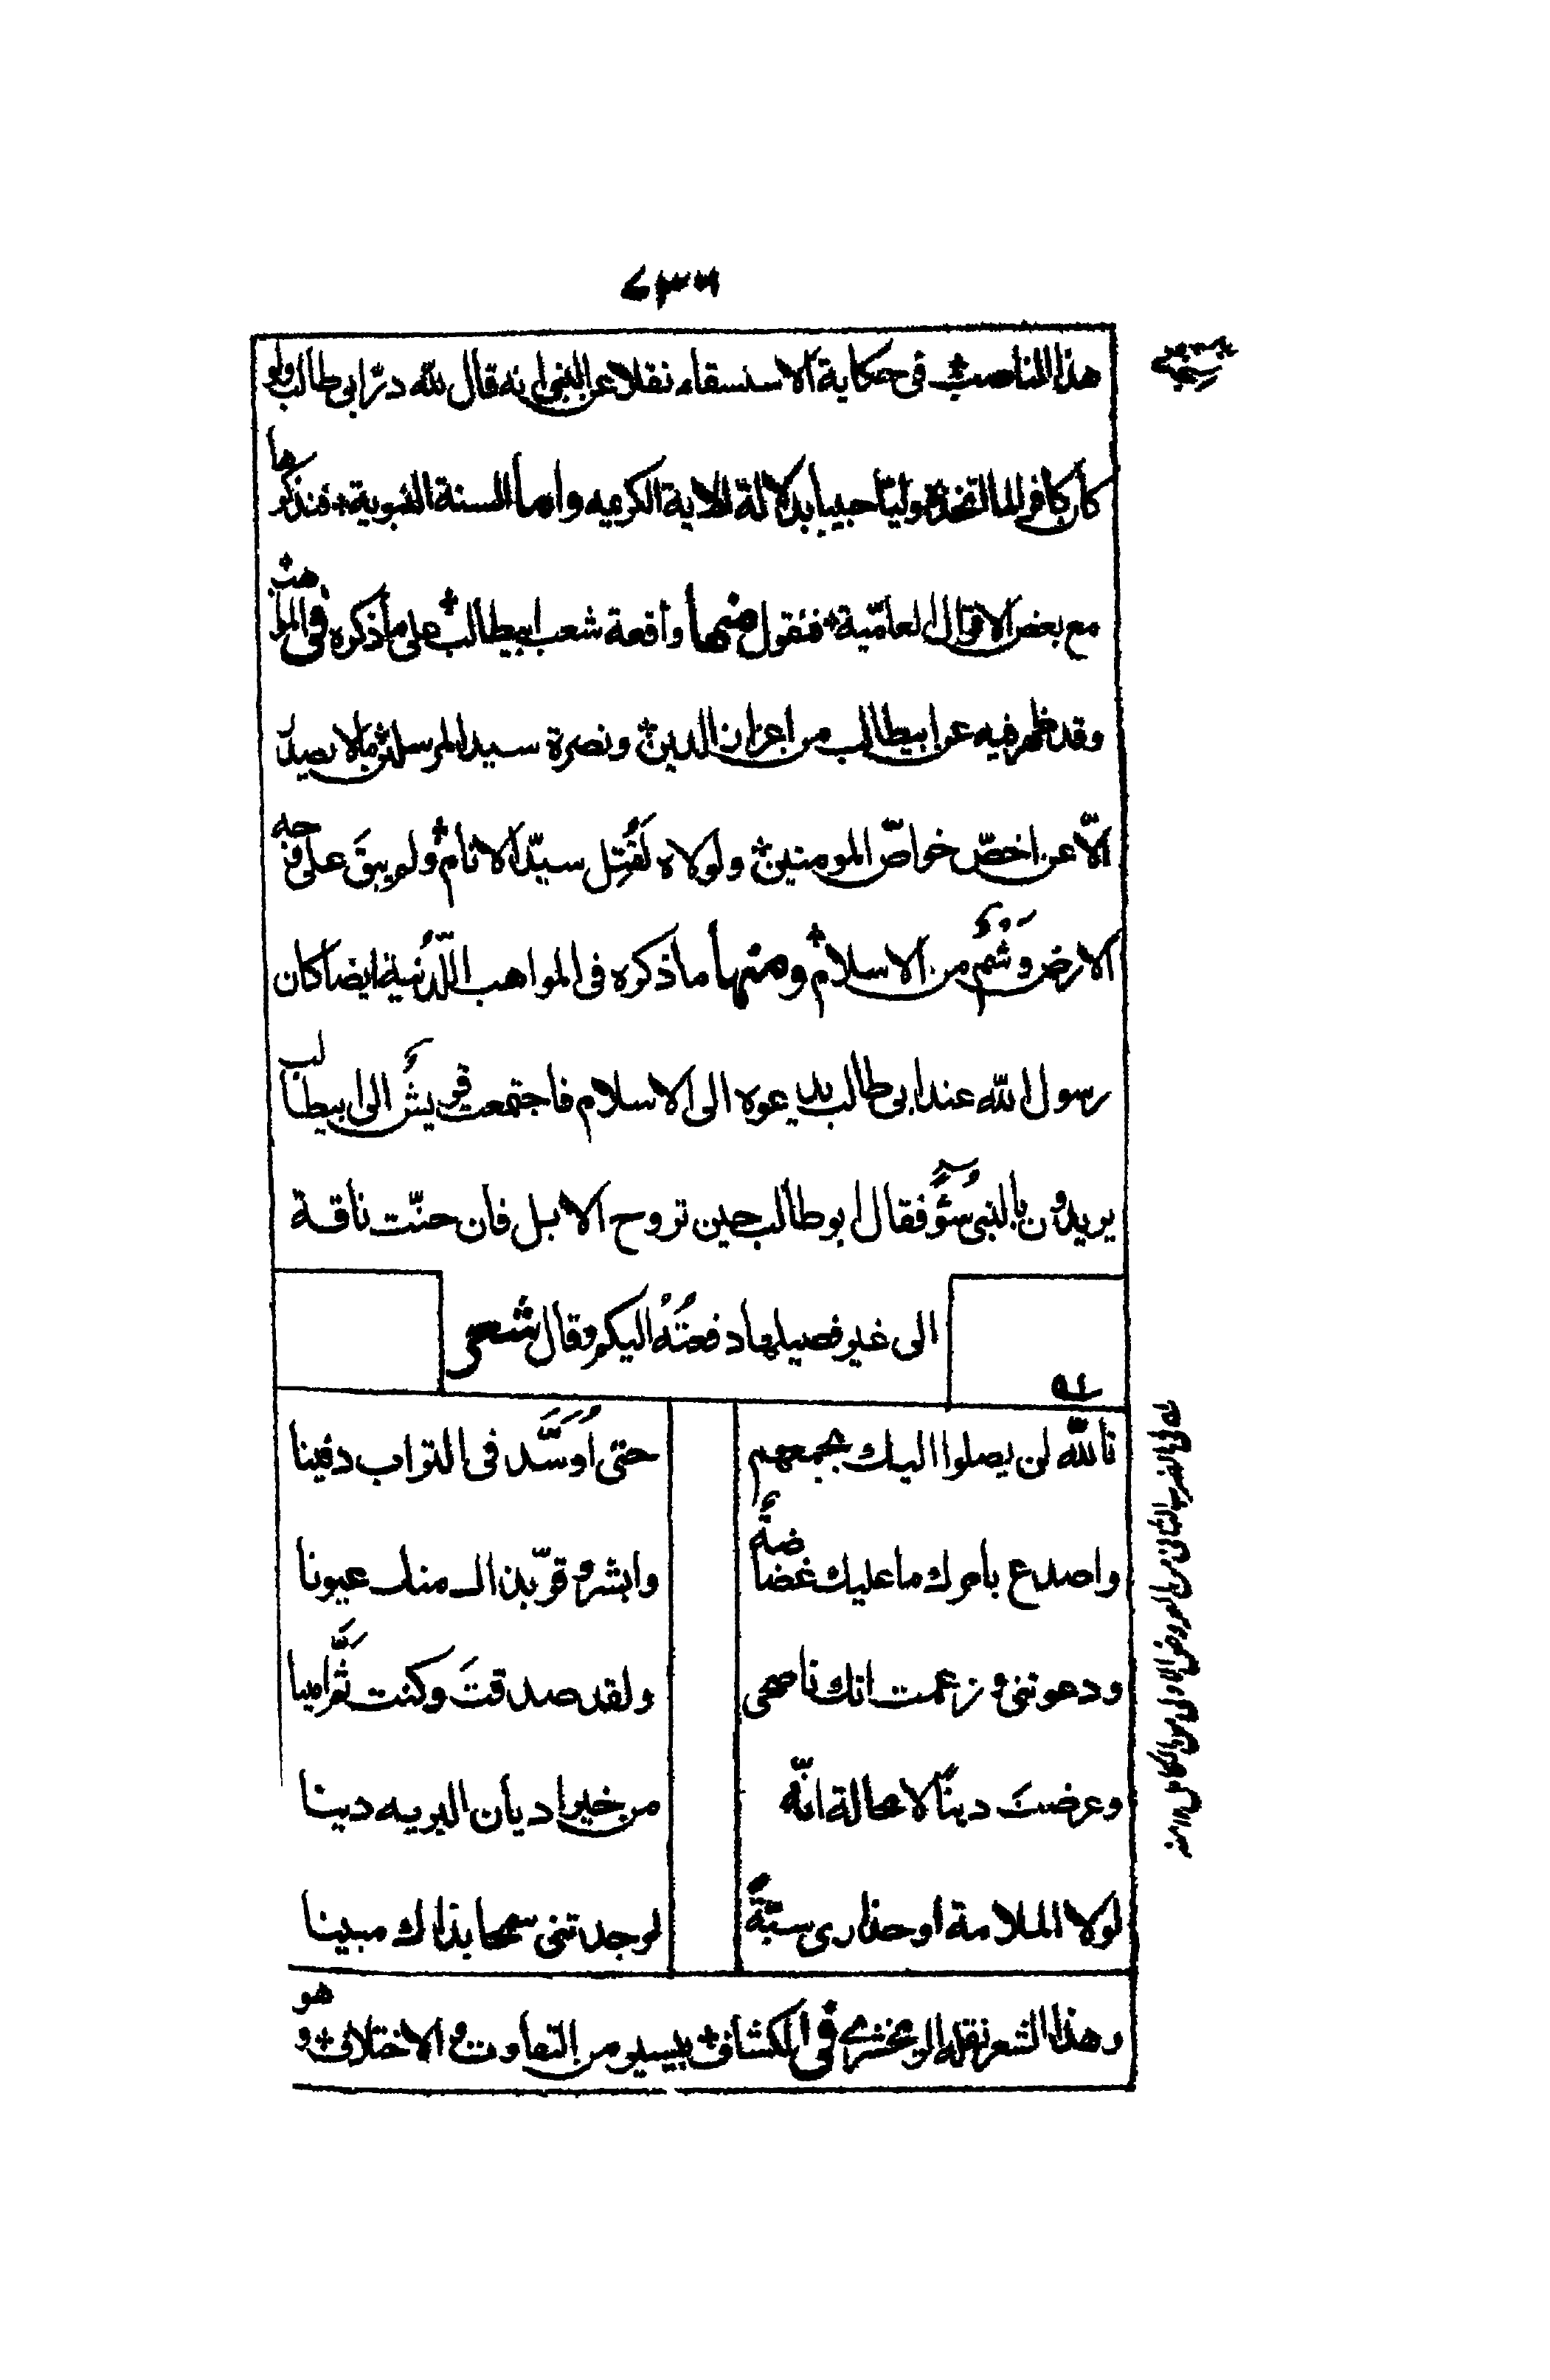 هذا المناصب في حكاية الاستسقاء نقلا عن النبي انه قال لله درّ ابي طالب ولو
كان كافرا لما اتخذه وليّا حبيبا بدلالة الاية الكريمه واما السنة النبوية فنذكرها
مع بعض الاقوال العامّية فنقول منها واقعة شعب ابيطالب على ما ذكره في المواهب
وقد ظهر فيه عن ابيطالب من اعزاز الدين ونصرة سيد المرسلين ما لا يصدر
الّا عن اخصّ خواصّ المومنين ولولاه لقُتِل سيّد الانام ولم يبقَ على وجه
الارض رسْم من الاسلام ومنها ما ذكره في المواهب اللّدنية ايضا كان
رسول الله عند ابي طالب يدعوه الى الاسلام فاجتمعت قريش الى ابيطالب
يريدون بالنبي سُوْءً فقال ابو طالب حين تروح الابل فان حنّت ناقة
الى غير فصيلها دفعتُهُ اليكم وقال شعر
تالله لن يصلوا اليك بجمعهم حتى اُوَسَّدَ في التراب دفينا
واصدع بامرك ما عليك غضاضةٌ وابشر وقرّ بذاك منك عيونا
ودعوتني وزعمت انك ناصحي ولقد صدقتَ وكنت ثَمَّ امينا
وعرضتَ دينًا لا محالة انّه من خير اديان البريه دينا
لولا الملامة او حذاري سبّةً لوجدتني سمحا بذاك مبينا
وهذا الشعر نقله الزمخشري في الكشاف بيسير من التفاوت والاختلاف وهو